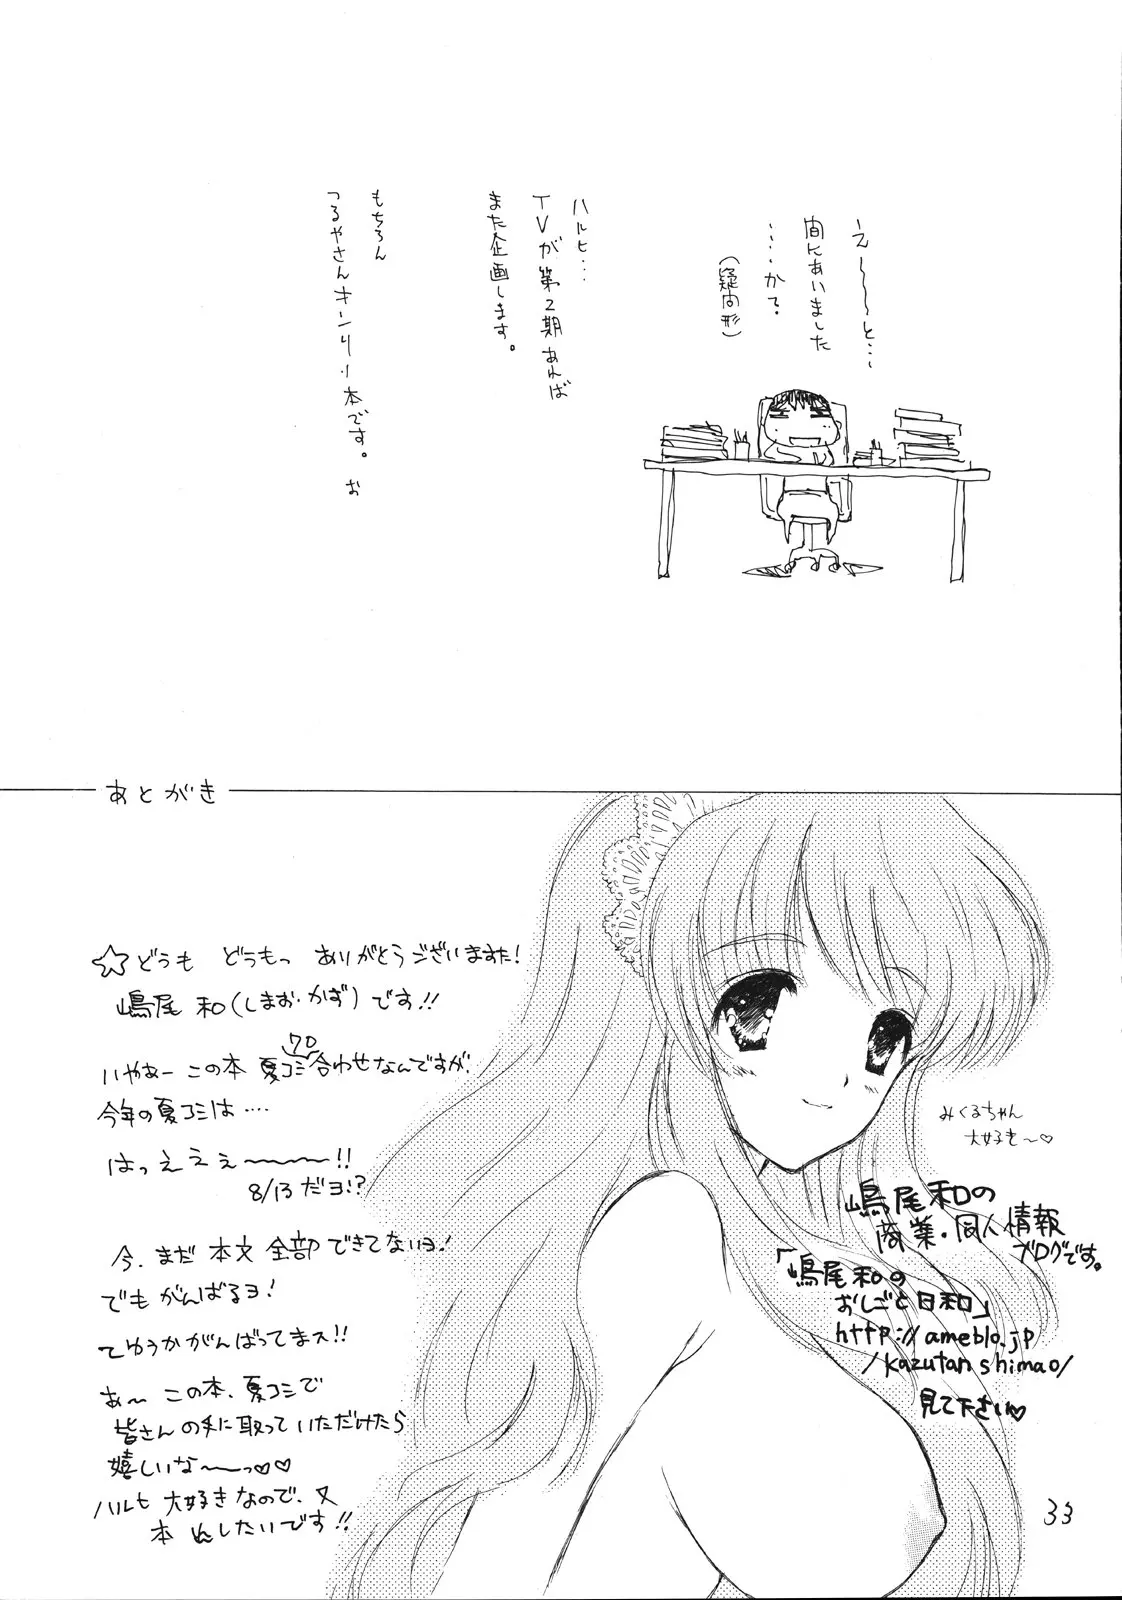 えーーーと…
間にあいました
……か？
(疑問形)
ハルヒ…
TVが第2期あれば
また企画します。
もちろん
つるやさんオンリー本です。 お
あとがき
☆どうも どうもっ ありがとうございますた！
嶋尾 和(しまお・かず)です!!
いやぁー この本 夏コミ合わせなんですが、
プロ
今年の夏コミは‥‥
はっええぇ〜〜〜!!
8/13だヨ!?
今、まだ 本文 全部できてないヨ！
でもがんばるヨ！
てゆうかがんばってまス!!
あ〜 この本、夏コミで
皆さんの手に取っていただけたら
嬉しいな〜〜っ♡♡
ハルヒ 大好きなので、又
本 したいです!!
みくるちゃん
大好き〜♡
嶋尾和の
商業・同人情報
ブログです。
「嶋尾和の
おしごと日和」
http://ameblo.jp
/kazutanshimao/
見て下さい♡
33